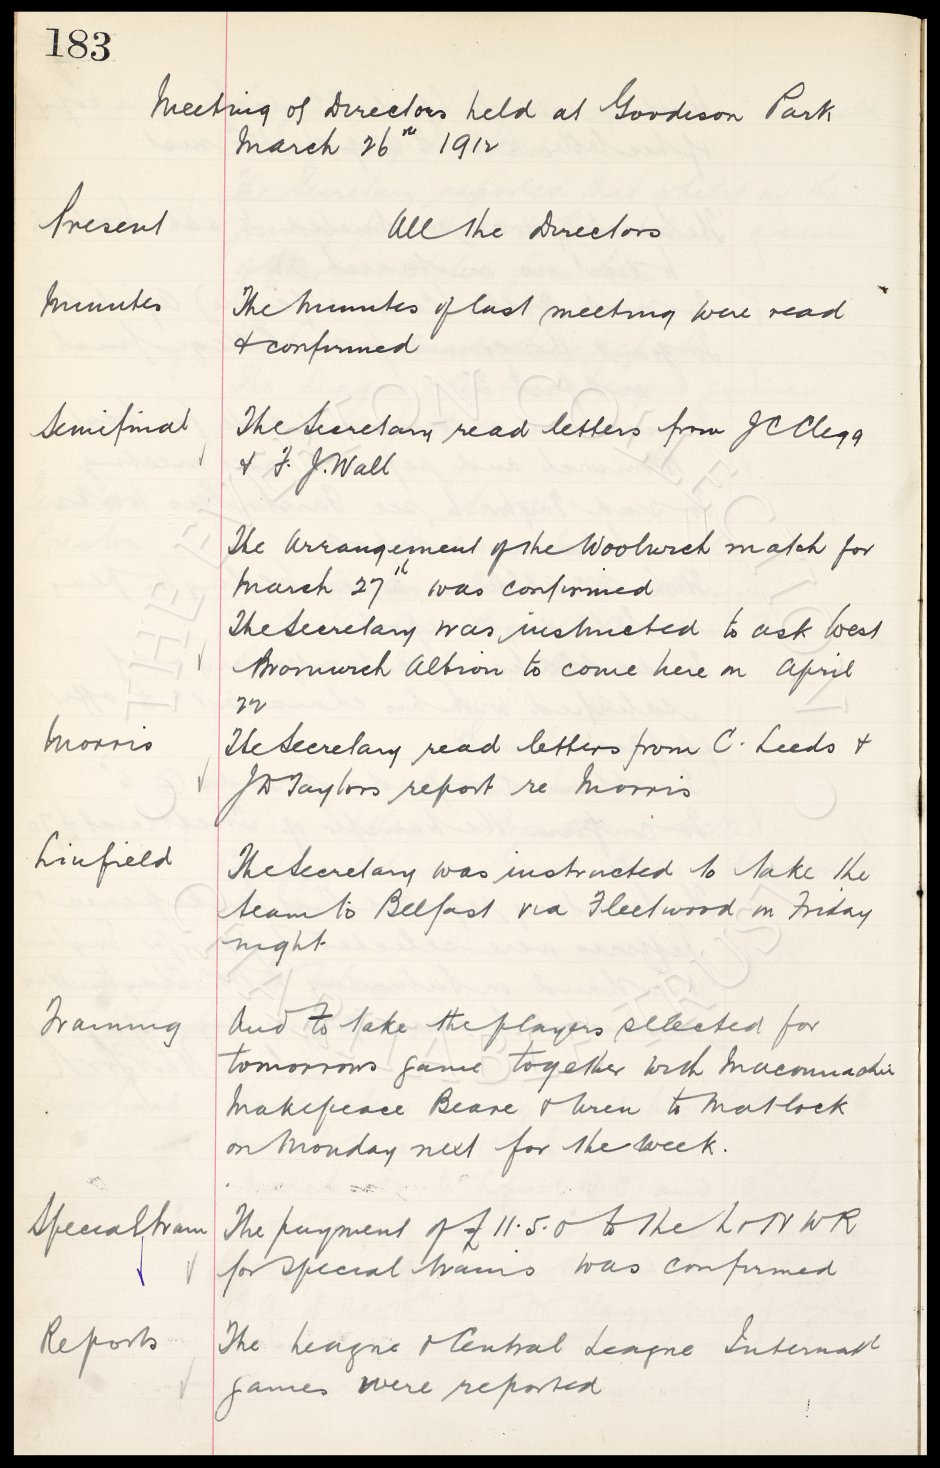 183
Meeting of Directors held at Goodison Park
March 26th 1912
Present All the Directors
Minutes The Minutes of last meeting were read
& confirmed
Semifinal The Secretary read letters from J C Clegg
& F. J. Wall
The Arrangement of the Woolwich match for
March 27th was confirmed
The Secretary was instructed to ask West
Bromwich Albion to come here on April
22
Morris The Secretary read letters from C. Leeds &
J D Taylors report re Morris
Linfield The Secretary was instructed to take the
team to Belfast via Fleetwood on Friday
night
Training And to take the players selected for
tomorrows game together with Maconnachie
Makepeace Beare & Uren to Matlock
on Monday next for the week.
Special train The payment of £11.5.0 to the L & N W R
for special trains was confirmed
Reports The League & Central League Internatl
games were reported
THE EVERTON COLLECTION
CHARITABLE TRUST